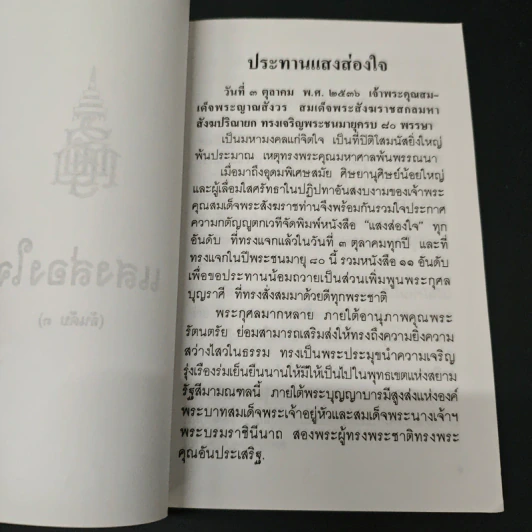 ประทานแสงส่องใจ
วันที่ ๓ ตุลาคม พ.ศ. ๒๕๓๖ เจ้าพระคุณสม-
เด็จพระญาณสังวร สมเด็จพระสังฆราชสกลมหา
สังฆปริณายก ทรงเจริญพระชนมายุครบ ๘๐ พรรษา
เป็นมหามงคลแก่จิตใจ เป็นที่ปิติโสมนัสยิ่งใหญ่
พ้นประมาณ เหตุทรงพระคุณมหาศาลพ้นพรรณนา
เมื่อมาถึงอุดมพิเศษสมัย ศิษยานุศิษย์น้อยใหญ่
และผู้เลื่อมใสศรัทธาในปฏิปทาอันสงบงามของเจ้าพระ
คุณสมเด็จพระสังฆราชท่านจึงพร้อมกันรวมใจประกาศ
ความกตัญญูตกเวทีจัดพิมพ์หนังสือ "แสงส่องใจ" ทุก
อันดับ ที่ทรงแจกแล้วในวันที่ ๓ ตุลาคมทุกปี และที่
ทรงแจกในปีพระชนมายุ ๘๐ นี้ รวมหนังสือ ๑๑ อันดับ
เพื่อขอประทานน้อมถวายเป็นส่วนเพิ่มพูนพระกุศล
บุญราศี ที่ทรงสั่งสมมาด้วยดีทุกพระชาติ
พระกุศลมากหลาย ภายใต้อานุภาพคุณพระ
รัตนตรัย ย่อมสามารถเสริมส่งให้ทรงถึงความยิ่งความ
สว่างไสวในธรรม ทรงเป็นพระประมุขนำความเจริญ
รุ่งเรืองร่มเย็นยืนนานให้มีให้เป็นไปในพุทธเขตแห่งสยาม
รัฐสีมามณฑลนี้ ภายใต้พระบุญญาบารมีสูงส่งแห่งองค์
พระบาทสมเด็จพระเจ้าอยู่หัวและสมเด็จพระนางเจ้าฯ
พระบรมราชินีนาถ สองพระผู้ทรงพระชาติทรงพระ
คุณอันประเสริฐ.
แสงส่องใจ
(อันดับ ๓)